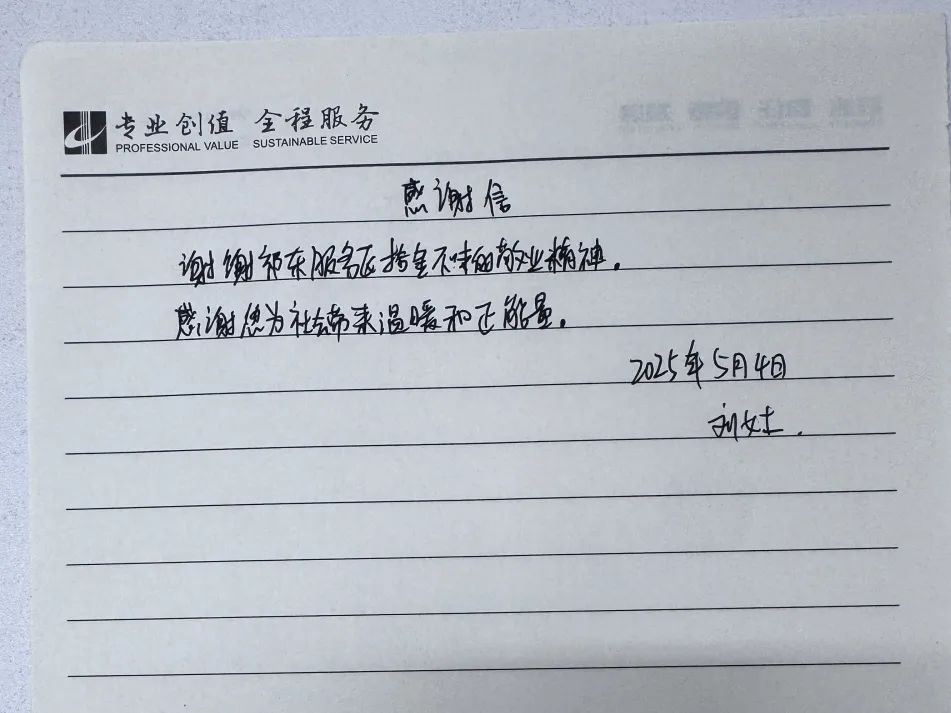 专业创值 全程服务
PROFESSIONAL VALUE SUSTAINABLE SERVICE
感谢信
谢谢祁东服务区拾金不昧的敬业精神.
感谢您为社会带来温暖和正能量.
2025年5月4日
刘女士.